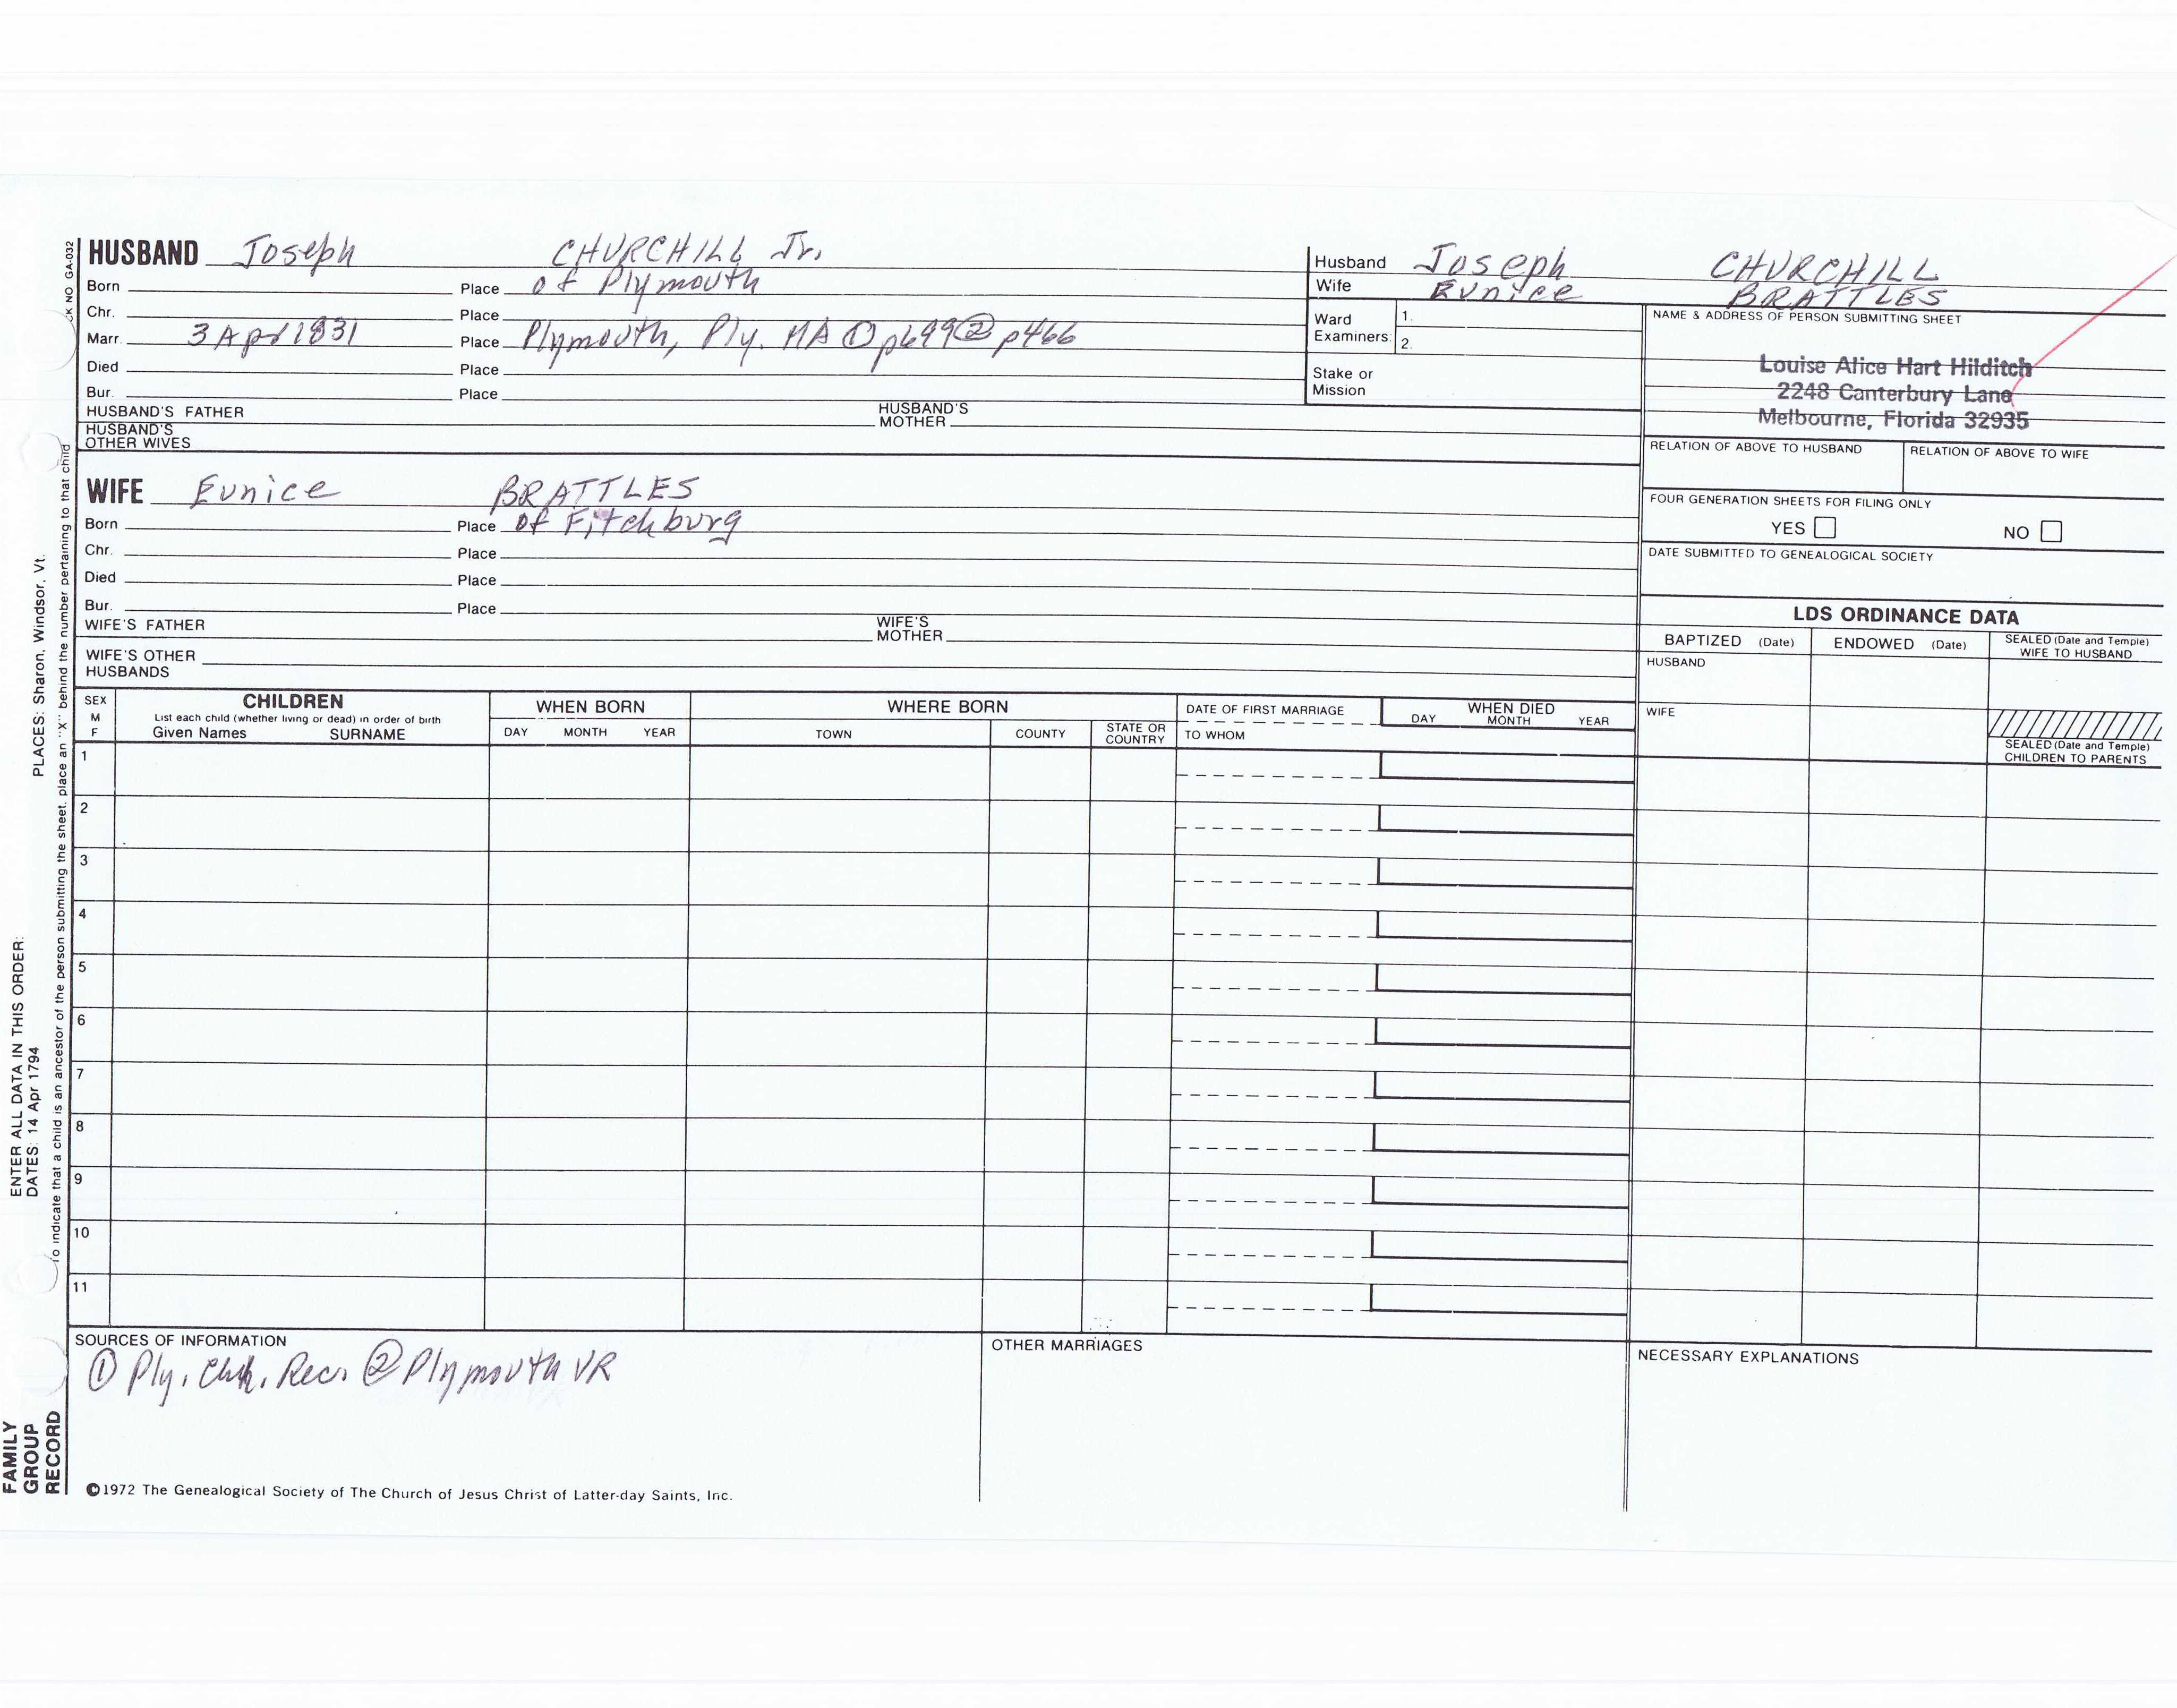 CK NO GA-032
HUSBAND Joseph CHURCHILL Jr.
Born Place of Plymouth
Chr. Place
Marr. 3 Apr 1831 Place Plymouth, Ply. MA ① p699 ② p466
Died Place
Bur. Place
HUSBAND'S FATHER HUSBAND'S MOTHER
HUSBAND'S OTHER WIVES
WIFE Eunice BRATTLES
Born Place of Fitchburg
Chr. Place
Died Place
Bur. Place
WIFE'S FATHER WIFE'S MOTHER
WIFE'S OTHER HUSBANDS
Husband Joseph CHURCHILL
Wife Eunice BRATTLES
Ward Examiners: 1.
2.
Stake or Mission
NAME & ADDRESS OF PERSON SUBMITTING SHEET
Louise Alice Hart Hilditch
2248 Canterbury Lane
Melbourne, Florida 32935
RELATION OF ABOVE TO HUSBAND RELATION OF ABOVE TO WIFE
FOUR GENERATION SHEETS FOR FILING ONLY
YES NO
DATE SUBMITTED TO GENEALOGICAL SOCIETY
LDS ORDINANCE DATA
BAPTIZED (Date) ENDOWED (Date) SEALED (Date and Temple) WIFE TO HUSBAND
HUSBAND
WIFE
SEALED (Date and Temple) CHILDREN TO PARENTS
SEX M F
CHILDREN
List each child (whether living or dead) in order of birth
Given Names SURNAME
WHEN BORN
DAY MONTH YEAR
WHERE BORN
TOWN COUNTY STATE OR COUNTRY
DATE OF FIRST MARRIAGE
TO WHOM
WHEN DIED
DAY MONTH YEAR
1
2
3
4
5
6
7
8
9
10
11
SOURCES OF INFORMATION
① Ply. Chh. Rec. ② Plymouth VR
OTHER MARRIAGES
NECESSARY EXPLANATIONS
©1972 The Genealogical Society of The Church of Jesus Christ of Latter-day Saints, Inc.
FAMILY GROUP RECORD
ENTER ALL DATA IN THIS ORDER:
DATES: 14 Apr 1794 PLACES: Sharon, Windsor, Vt.
To indicate that a child is an ancestor of the person submitting the sheet, place an "X" behind the number pertaining to that child